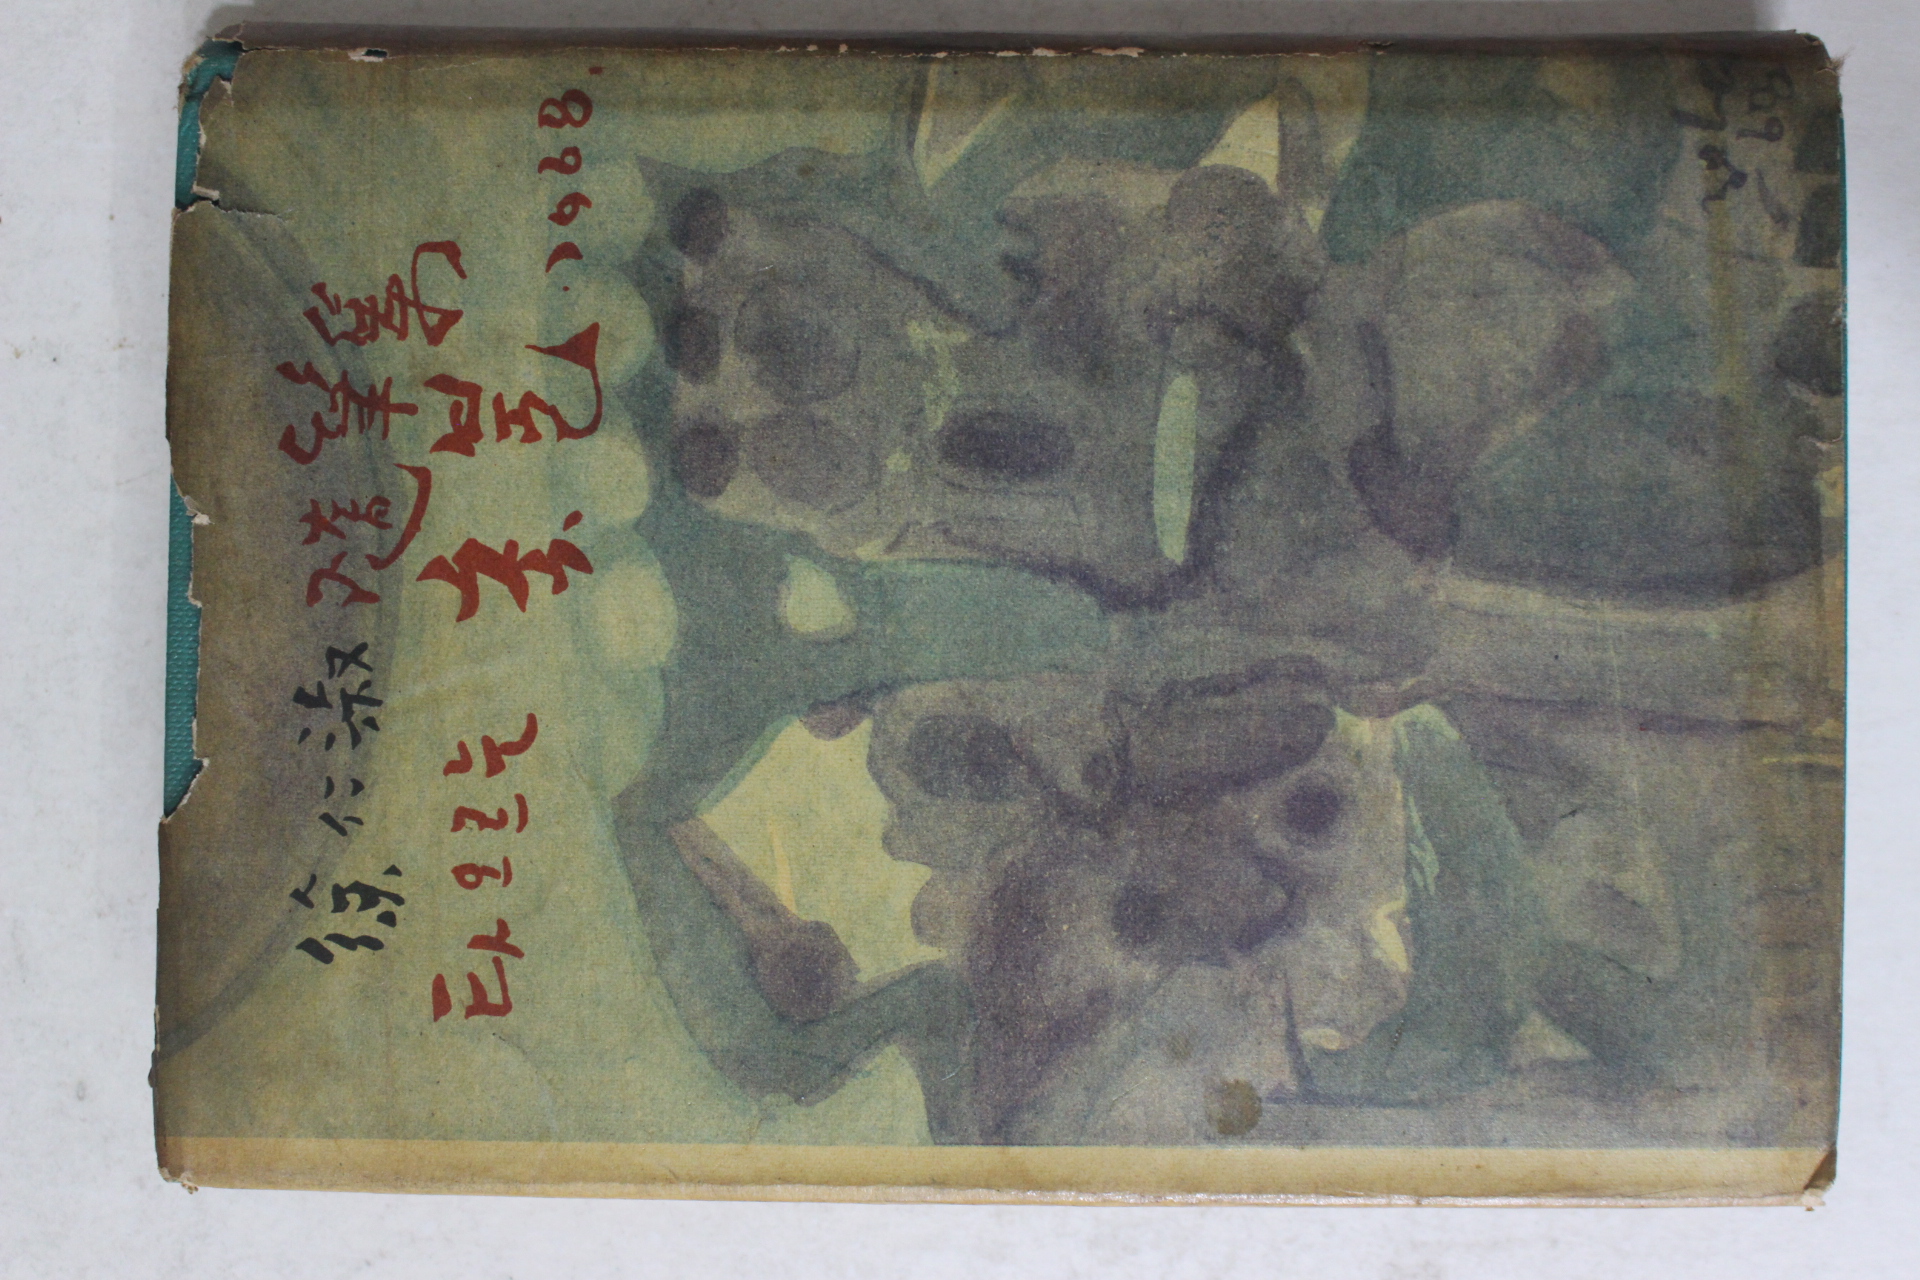 徐仁淑 隨筆集
타오르는 촛불
1968.